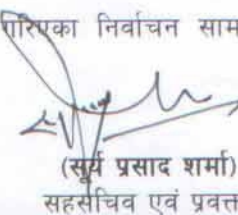 गरिएका निर्वाचन साम
(सुर्य प्रसाद शर्मा)
सहसचिव एवं प्रवक्त